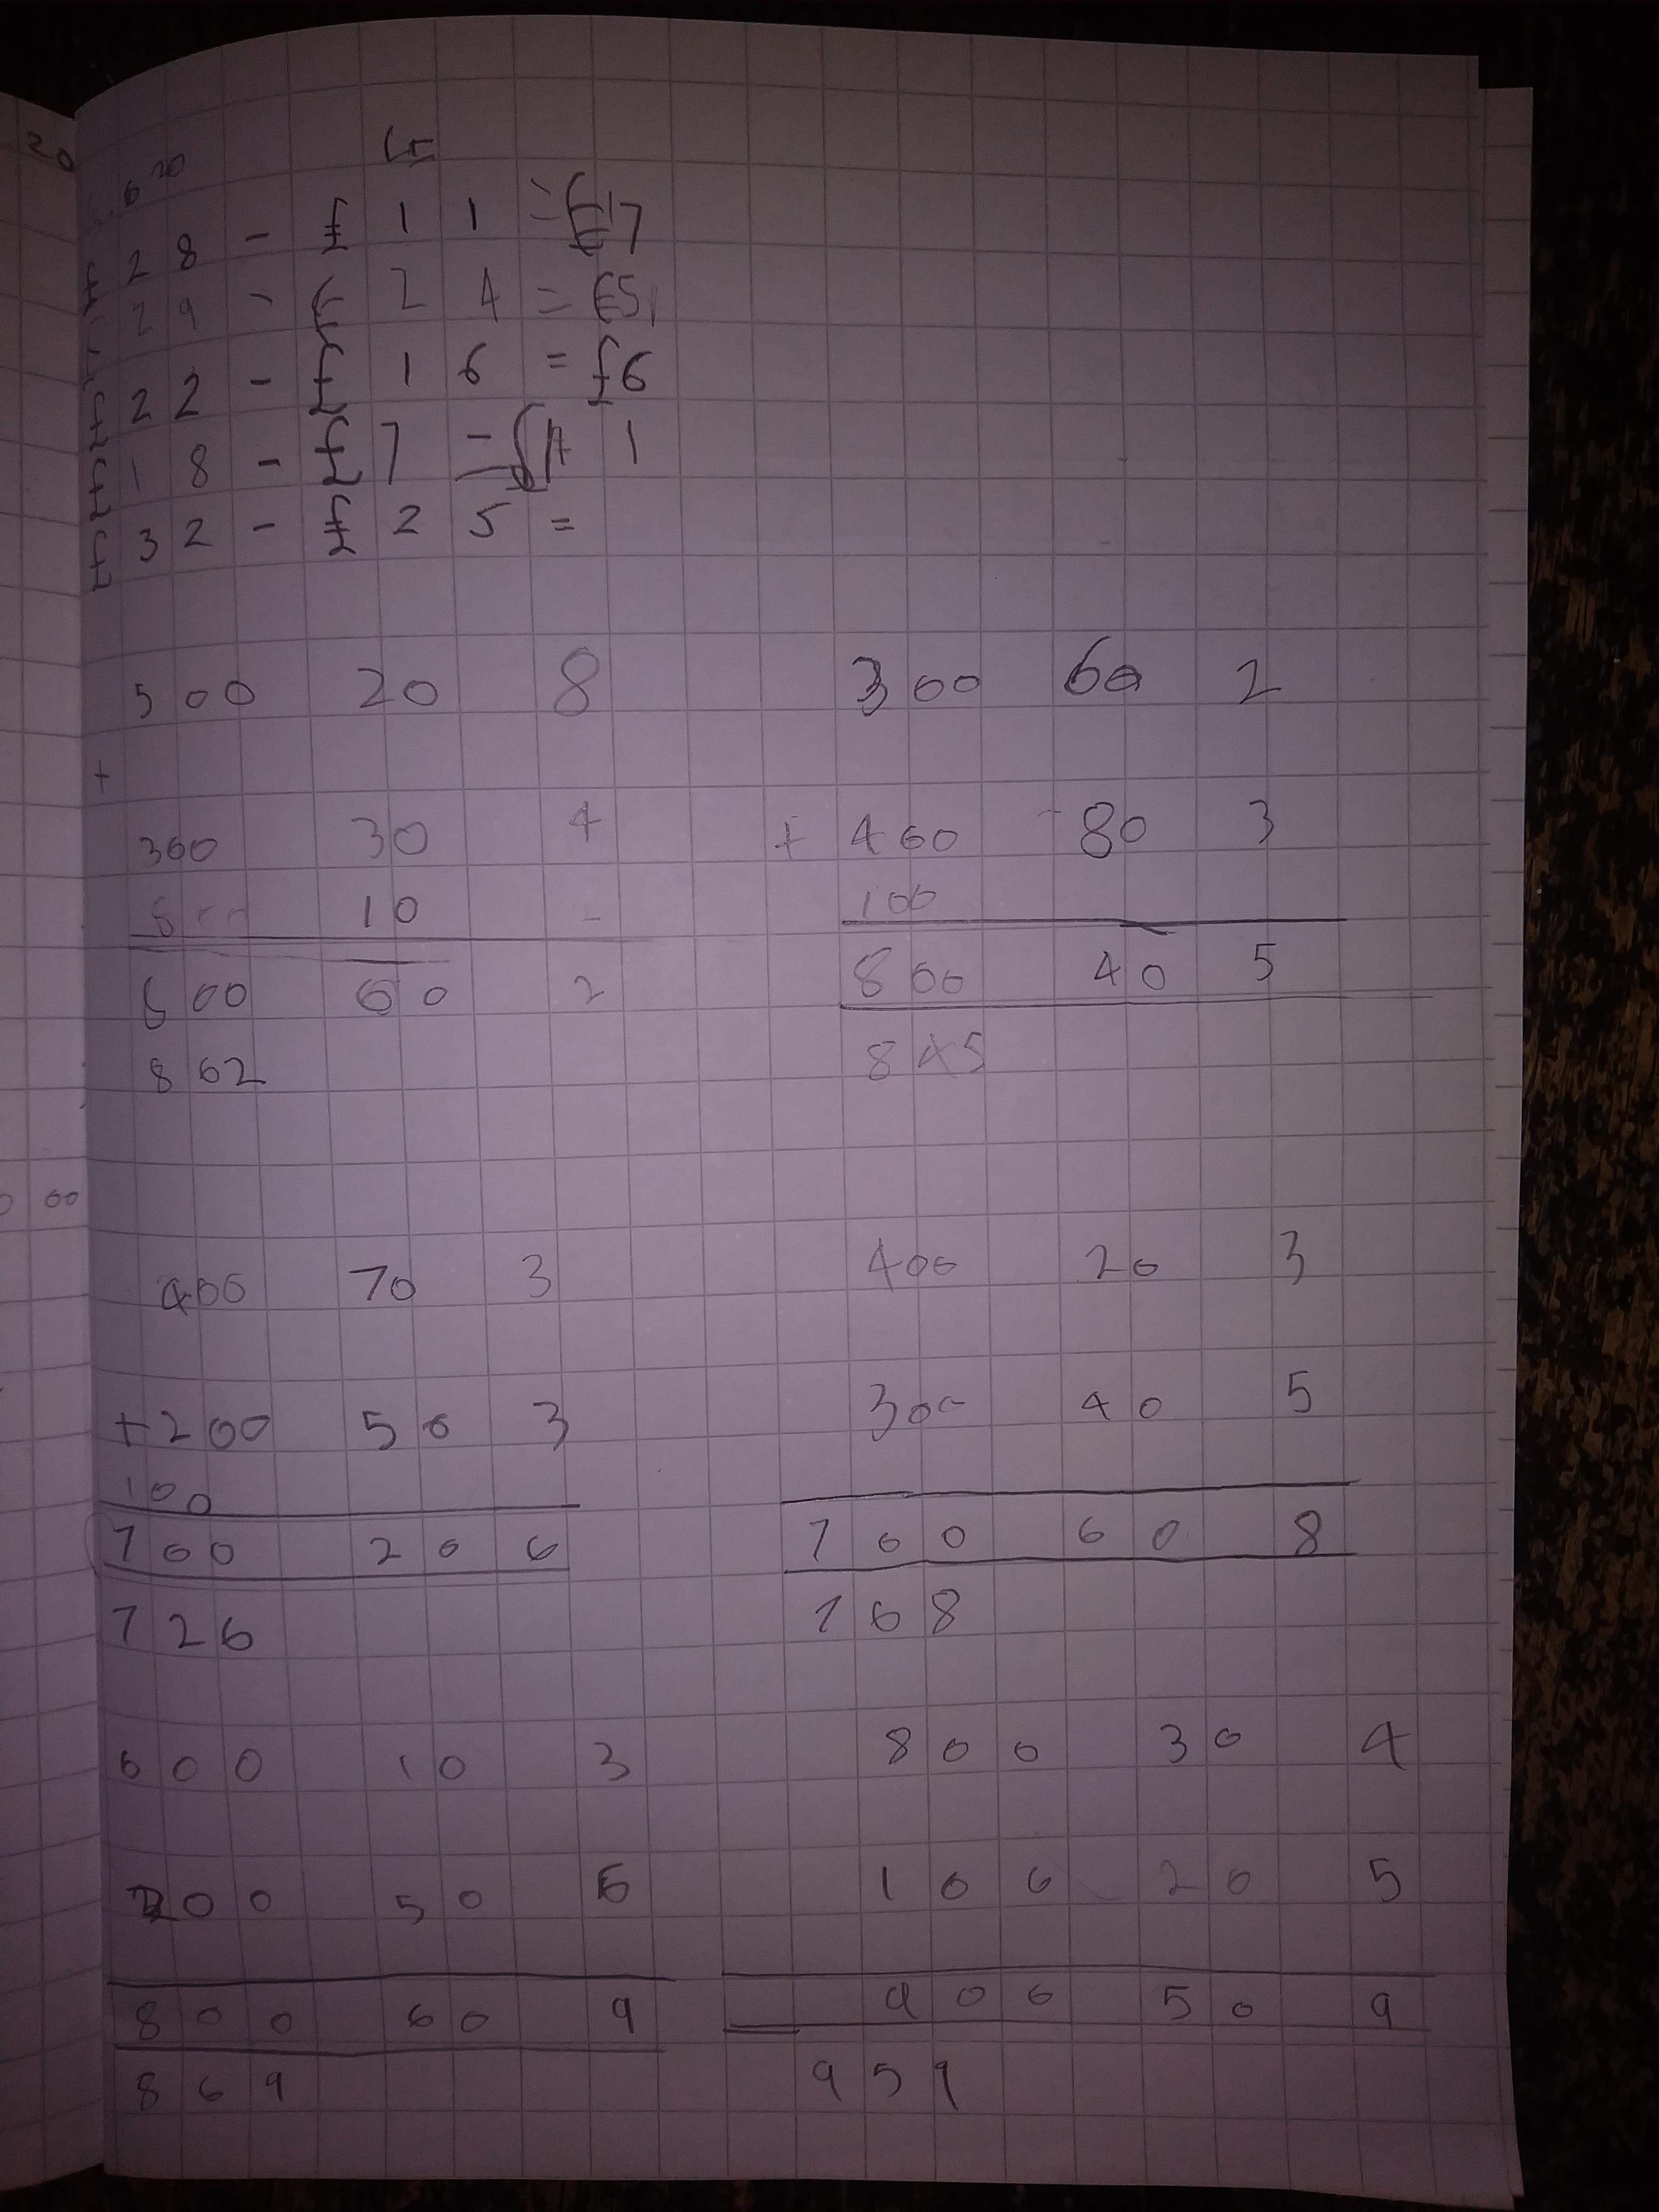 20
6 20
£28 - £11 = £17
£29 - £24 = £5
£22 - £16 = £6
£18 - £7 = £11
£32 - £25 =
500 20 8
+
300 30 4
10
800 60 2
862
300 60 2
+ 400 80 3
100
800 40 5
845
00
400 70 3
+ 200 50 3
100
700 20 6
726
400 20 3
300 40 5
700 60 8
768
600 10 3
200 50 6
800 60 9
869
800 30 4
100 20 5
900 50 9
959